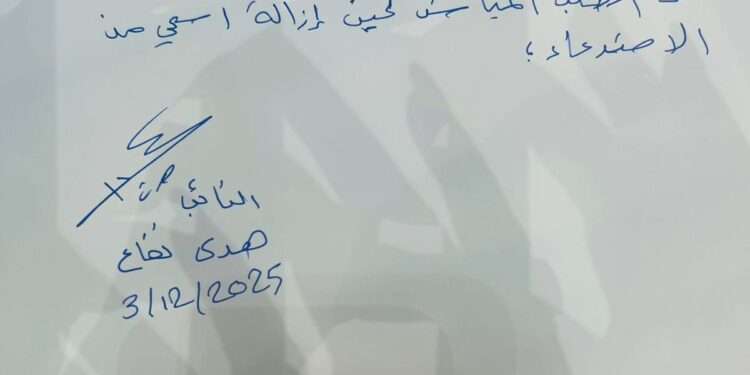 المباشر لحين إزالة اسمي من
الاستدعاء؛
النائب
هدى نفاع
3/12/2025